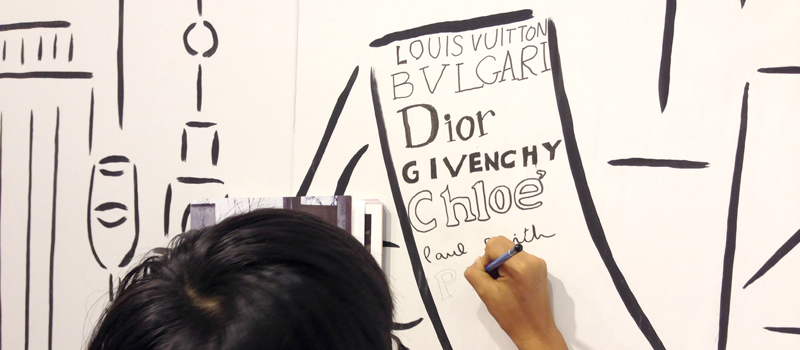 LOUIS VUITTON
BVLGARI
Dior
GIVENCHY
Chloé
Paul Smith
P